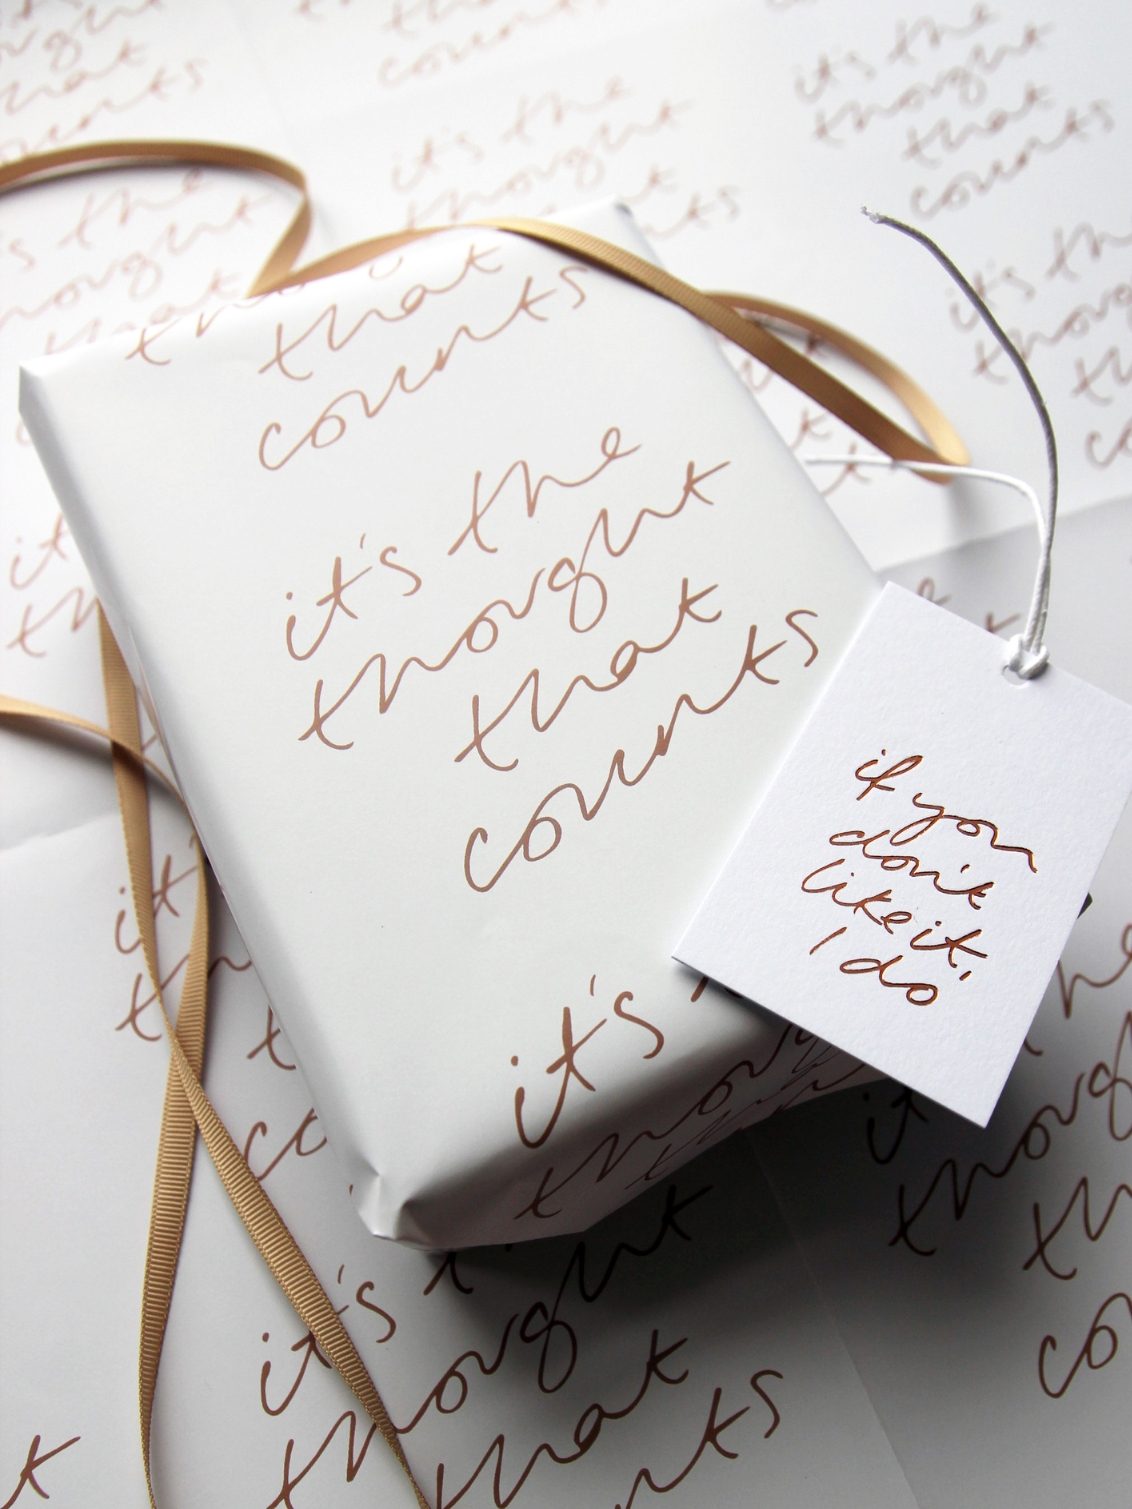 it's the
thought
that
counts
it's the
thought
that
counts
it's the
thought
that
counts
that
counts
it's the
thought
that
counts
it's
thought
if you
don't
like it,
I do
it's
thought
that
counts